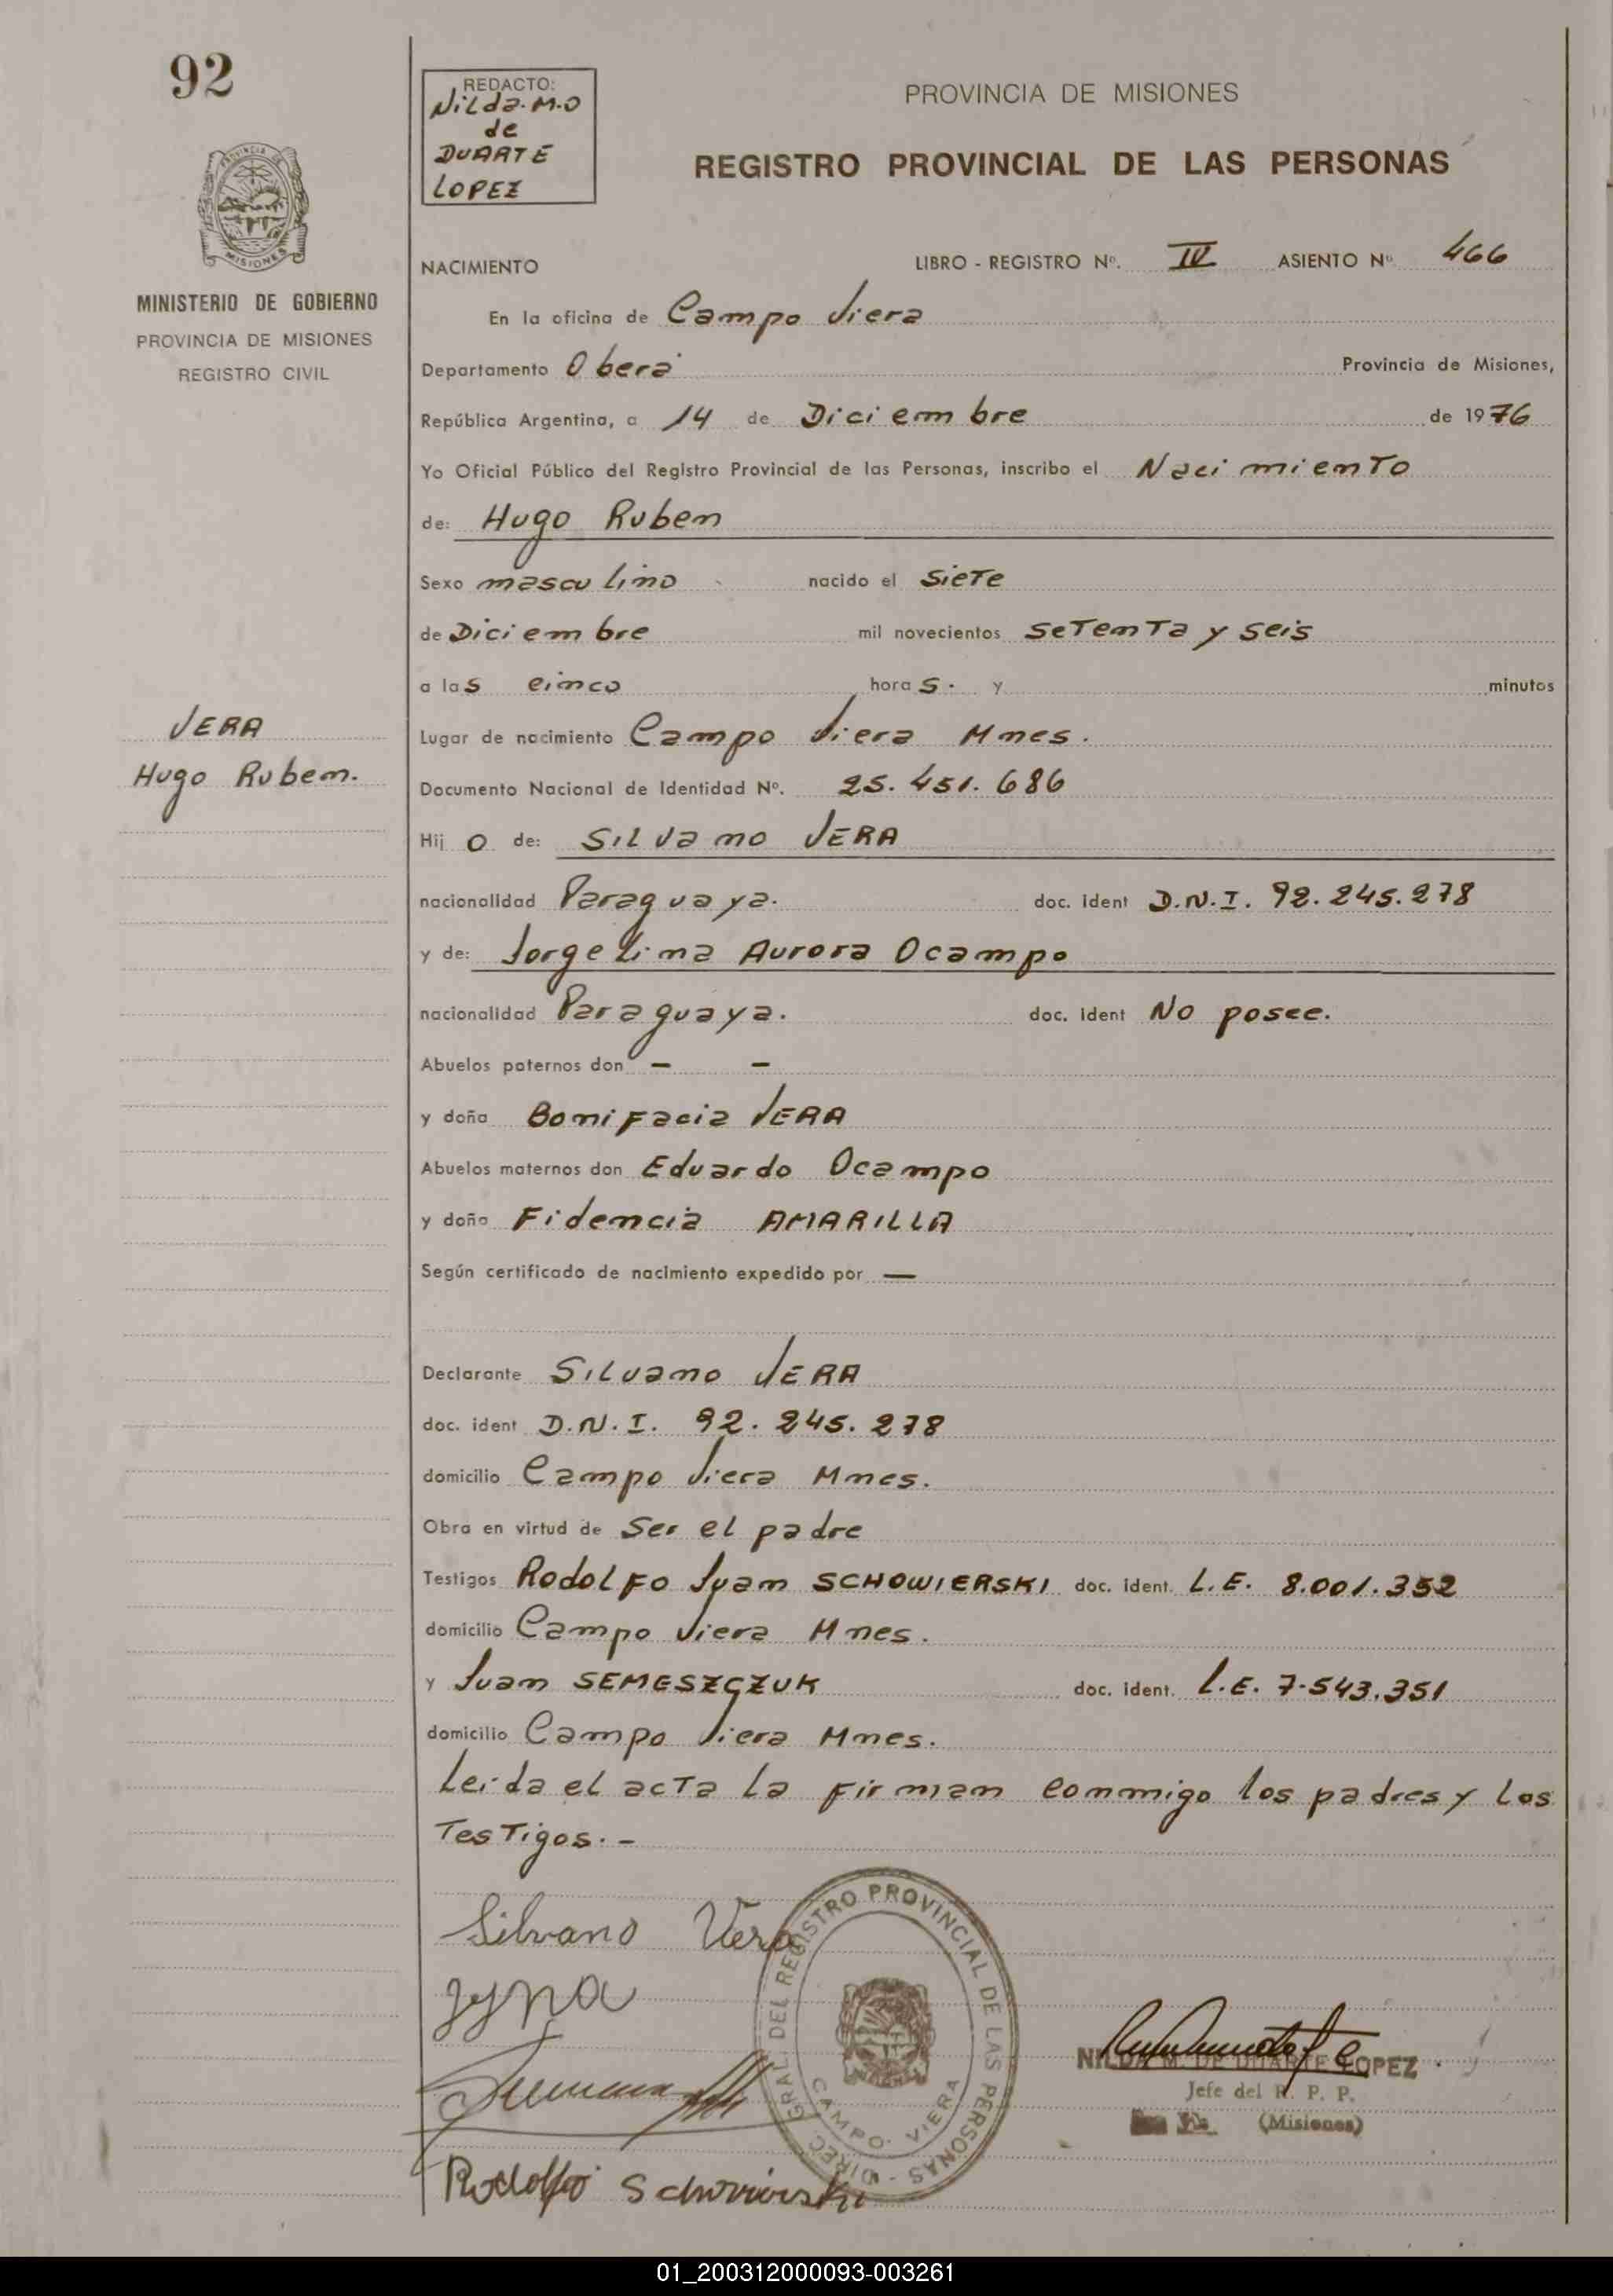 92
REDACTO:
Nilda M.O
de
DUARTE
LOPEZ
PROVINCIA DE MISIONES
REGISTRO PROVINCIAL DE LAS PERSONAS
PROVINCIA DE
MISIONES
MINISTERIO DE GOBIERNO
PROVINCIA DE MISIONES
REGISTRO CIVIL
NACIMIENTO LIBRO - REGISTRO Nº. IV ASIENTO Nº 466
En la oficina de Campo Viera
Departamento Oberá Provincia de Misiones,
República Argentina, a 14 de Diciembre de 1976
Yo Oficial Público del Registro Provincial de las Personas, inscribo el Nacimiento
de: Hugo Ruben
Sexo masculino nacido el siete
de Diciembre mil novecientos setenta y seis
a las cinco horas. y minutos
VERA
Hugo Ruben.
Lugar de nacimiento Campo Viera Mnes.
Documento Nacional de Identidad Nº. 25.451.686
Hijo de: Silvano VERA
nacionalidad Paraguaya. doc. ident D.N.I. 92.245.278
y de: Jorgelina Aurora Ocampo
nacionalidad Paraguaya. doc. ident No posee.
Abuelos paternos don — —
y doña Bonifacia VERA
Abuelos maternos don Eduardo Ocampo
y doña Fidencia AMARILLA
Según certificado de nacimiento expedido por —
Declarante Silvano VERA
doc. ident D.N.I. 92.245.278
domicilio Campo Viera Mnes.
Obra en virtud de ser el padre
Testigos Rodolfo Juan SCHOWIERSKI doc. ident. L.E. 8.001.352
domicilio Campo Viera Mnes.
y Juan SEMESZCZUK doc. ident. L.E. 7.543.351
domicilio Campo Viera Mnes.
Leida el acta la firman conmigo los padres y los
Testigos. -
Silvano Vera
DIREC. GRAL. DEL REGISTRO PROVINCIAL DE LAS PERSONAS -
CAMPO VIERA
NILDA M. DE DUARTE LOPEZ
Jefe del R. P. P.
(Misiones)
Rodolfo Schowierski
01_200312000093-003261